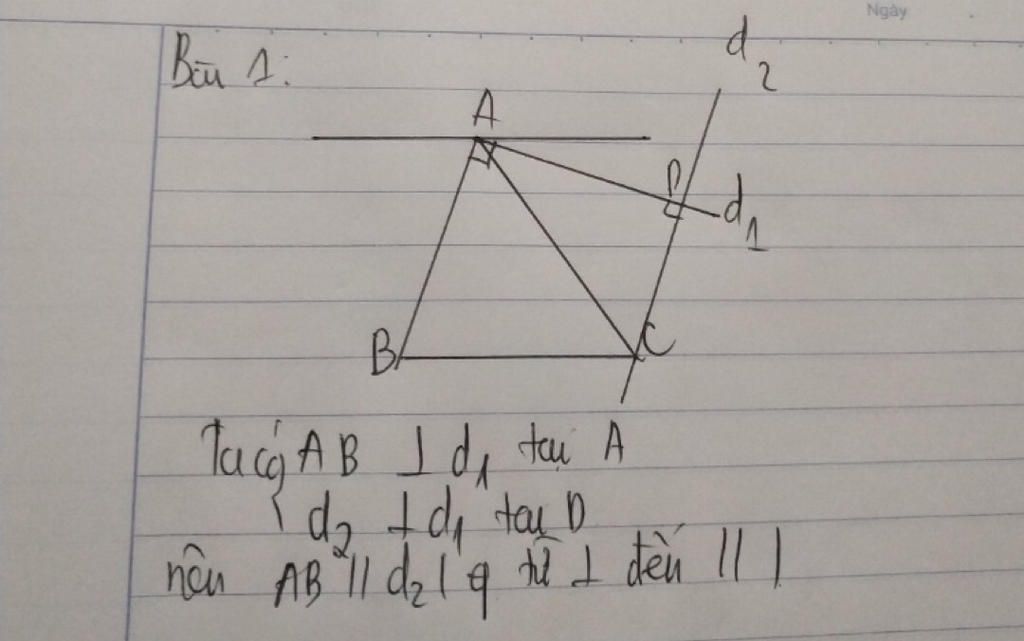 Ngày
Bài 1:
d2
A
D
d1
B
C
Ta có AB ⊥ d1 tại A
d2 ⊥ d1 tại D
nên AB // d2 ( q từ ⊥ đến // )